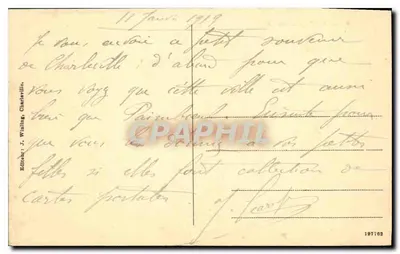 11 Janv 1919
Je vous envoie ce petit souvenir
de Charleville : d'abord pour que
vous voyez que cette ville est aussi
bien que Paimboeuf. Ensuite pour
que vous le donniez à vos petites
filles si elles font collection de
cartes postales.
Editeur : J. Winling, Charleville.
CPARAMA.COM
197762